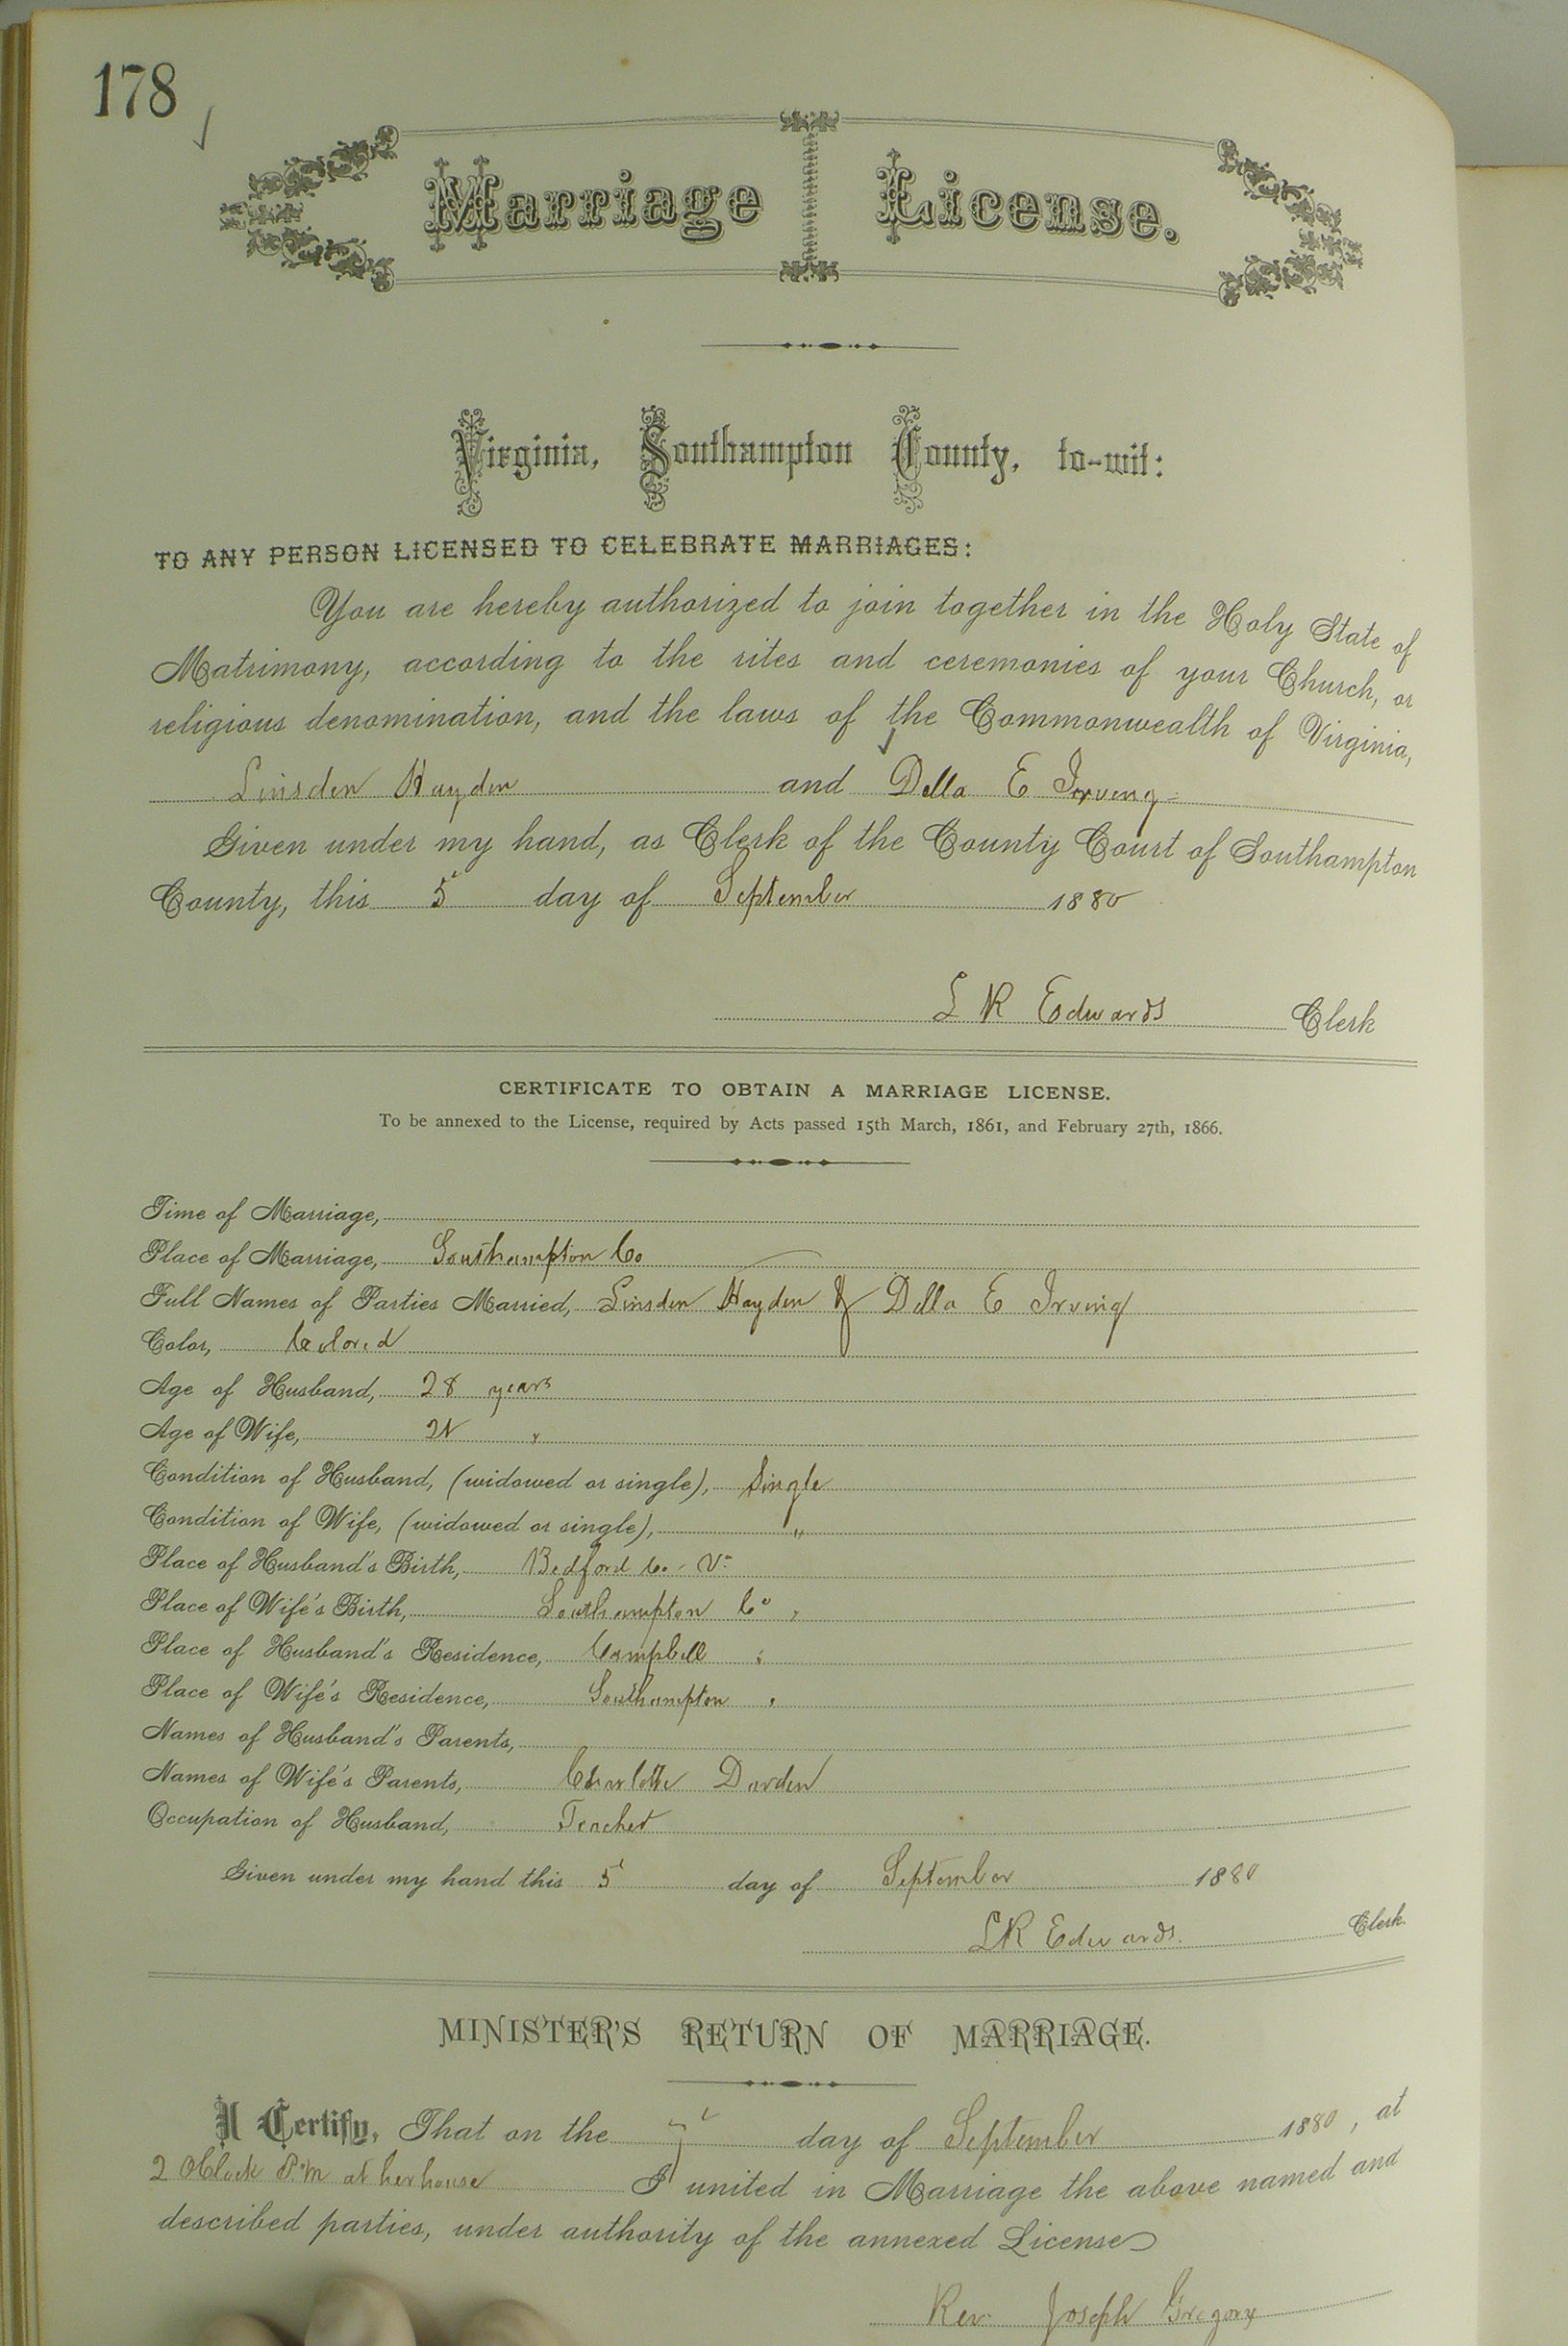 178
Marriage License.
Virginia, Southampton County, to-wit:
TO ANY PERSON LICENSED TO CELEBRATE MARRIAGES:
You are hereby authorized to join together in the Holy State of
Matrimony, according to the rites and ceremonies of your Church, or
religious denomination, and the laws of the Commonwealth of Virginia,
Linsden Hayden and Della E Irving
Given under my hand, as Clerk of the County Court of Southampton
County, this 5 day of September 1880
L R Edwards Clerk
CERTIFICATE TO OBTAIN A MARRIAGE LICENSE.
To be annexed to the License, required by Acts passed 15th March, 1861, and February 27th, 1866.
Time of Marriage,
Place of Marriage, Southampton Co
Full Names of Parties Married, Linsden Hayden & Della E Irving
Color, Colored
Age of Husband, 28 years
Age of Wife, "
Condition of Husband, (widowed or single), Single
Condition of Wife, (widowed or single), "
Place of Husband's Birth, Bedford Co. Va
Place of Wife's Birth, Southampton Co "
Place of Husband's Residence, Campbell "
Place of Wife's Residence, Southampton "
Names of Husband's Parents,
Names of Wife's Parents, Charlotte Darden
Occupation of Husband, Teacher
Given under my hand this 5 day of September 1880
L R Edwards. Clerk.
MINISTER'S RETURN OF MARRIAGE.
I Certify, That on the 7 day of September 1880, at
2 OClock P.M at her house I united in Marriage the above named and
described parties, under authority of the annexed License
Rev. Joseph Gregory